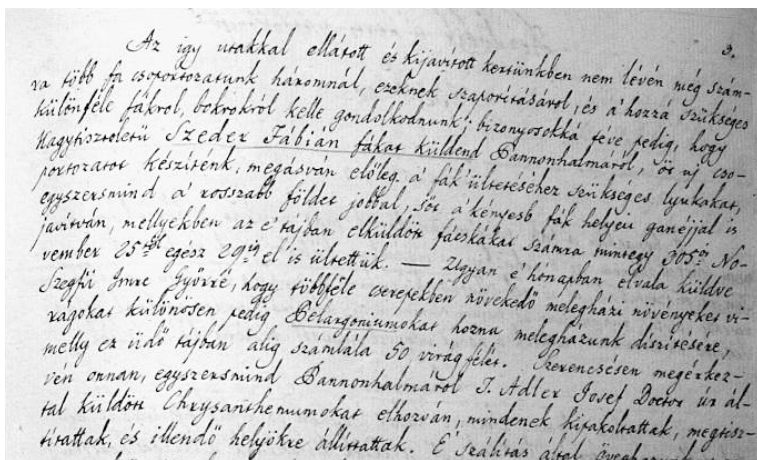 3.
Az igy utakkal ellátott és kijavított kertünkben nem lévén még szám-
va több fa csoportozatunk háromnál, ezeknek szaporításárol, és a' hozzá szükséges
különféle fákrol, bokrokról kelle gondolkodnunk; bizonyosokká téve pedig, hogy
Nagytiszteletü Szeder Fábián fákat küldend Pannonhalmáról, öt uj cso-
portozatot készítenk, megásván előleg a' fák' ültetéséhez szükséges lyukakat,
egyszersmind a' rosszabb földet jobbal, sőt a' kényesb fák helyeu ganéjjal is
javítván, mellyekben az e' tájban elküldött fácskákat számra mintegy 305öt No-
vember 25től egész 29ig el is ültettük. — Ugyan e' honapban elvala küldve
Szegfü Imre Győrré, hogy többféle cserepekben növekedő melegházi növényeket vi-
rágokat különösen pedig Pelargoniumokat hozna melegházunk díszítésére,
melly ez üdő tájban alig számlála 50 virág félét. Szerencsésen megérkez-
vén onnan, egyszersmind Pannonhalmáról T. Adler Josef Doctor úr ál-
tal küldött Chrysanthemumokat elhozván, mindenek kirakoltattak, megtisz-
títattak, és illendő helyökre állíttattak. E' szálitás által